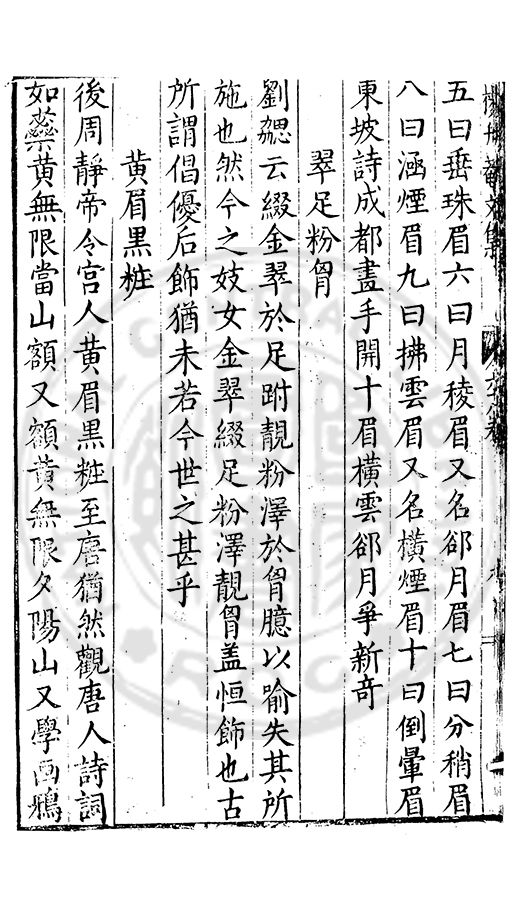 五曰垂珠眉六曰月稜眉又名郤月眉七曰分稍眉
八曰涵煙眉九曰拂雲眉又名橫煙眉十曰倒暈眉
東坡詩成都畫手開十眉橫雲郤月爭新奇
翠足粉胷
劉勰云綴金翠於足跗靚粉澤於胷臆以喻失其所
施也然今之妓女金翠綴足粉澤靚胷盖恒飾也古
所謂倡優后飾猶未若今世之甚乎
黄眉黒粧
後周靜帝令宫人黄眉黒粧至唐猶然觀唐人詩詞
如蘂黄無限當山額又額黄無限夕陽山又學画鴉